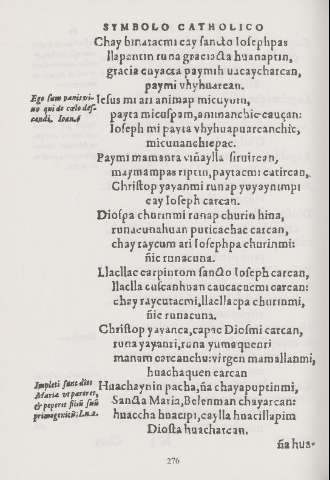 SYMBOLO CATHOLICO
Chay hinatacmi cay sancto Iosephpas
llapantin runa graciacta huanaptin,
gracia cuyacta paymih uacaychatcan,
paymi vhyhuarcan.
Ego sum panis vi-
uo qui de cœlo des-
cendi, Ioan.6
Iesus mi ari animap micuynin,
payta micuspam, animanchic cauçan:
Ioseph mi payta vhyhuapuarcanchic,
micunanchicpac.
Paymi mamanta viñaylla siruircan,
maymampas riptin, paytacmi catircan,
Christop yayanmi runap yuyaynimpi
cay Ioseph carcan.
Diospa churinmi runap churin hina,
runacunahuan puricachac carcan,
chay raycum ari Iosephpa churinmi:
ñic runacuna.
Llacllac carpintom sancto Ioseph carcan,
llaclla cuscanhuan caucacucmi carcan:
chay raycutacmi, llacllacpa churinmi,
ñic runacuna.
Christop yayanca, capac Diosmi carcan,
runa yayanri, runa yumaquenri
manam carcanchu: virgen mamallanmi,
huachaquen carcan
Impleti sunt dies
Maria vt pareret,
& peperit filiũ suũ
primogenitũ; Lu.2.
Huachaynin pacha, ña chayapuptinmi,
Sancta Maria, Belenman chayarcan:
huaccha huacipi, caylla huacillapim
Diosta huacharcan.
ña hua-
276